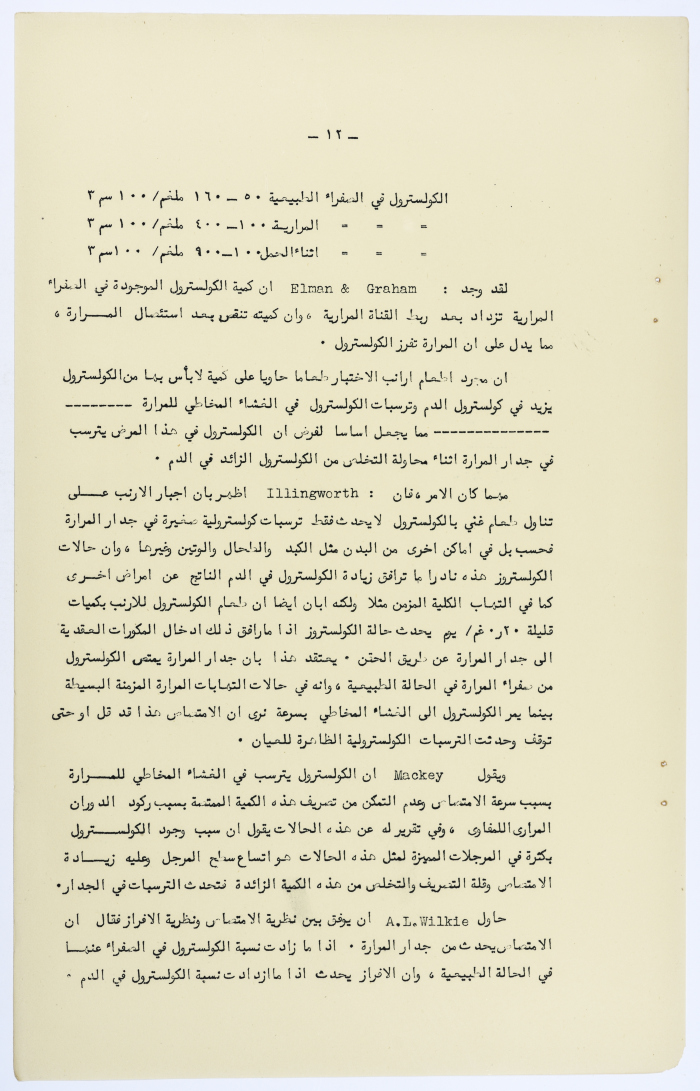 — ١٢ —
الكولسترول في الصفراء الطبيعية ٥٠ — ١٦٠ ملغم/ ١٠٠ سم ٣
= = = المرارية ١٠٠—٤٠٠ ملغم/ ١٠٠ سم ٣
= = = اثناء الحمل ١٠٠—٩٠٠ ملغم/ ١٠٠سم ٣
لقد وجد : Elman & Graham ان كمية الكولسترول الموجودة في الصفراء
المرارية تزداد بعد ربط القناة المرارية ، وان كميته تنقص بعد استئصال المـــرارة ،
مما يدل على ان المرارة تفرز الكولسترول ٠
ان مجرد اطعام ارانب الاختبار طعاما حاويا على كمية لابأس بها من الكولسترول
يزيد في كولسترول الدم وترسبات الكولسترول في الغشاء المخاطي للمرارة --------
-------------- مما يجعل اساسا لفرض ان الكولسترول في هذا المرض يترسب
في جدار المرارة اثناء محاولة التخلص من الكولسترول الزائد في الدم ٠
مهما كان الامر ، فان : Illingworth اظهر بان اجبار الارنب عـــلى
تناول طعام غني بالكولسترول لا يحدث فقط ترسبات كولسترولية صغيرة في جدار المرارة
فحسب بل في اماكن اخرى من البدن مثل الكبد والطحال والوتين وغيرها ، وان حالات
الكولستروز هذه نادرا ما ترافق زيادة الكولسترول في الدم الناتج عن امراض اخـرى
كما في التهاب الكلية المزمن مثلا ولكنه ابان ايضا ان طعام الكولسترول للارنب بكميات
قليلة ٢٠ر٠ غم/ يوم يحدث حالة الكولستروز اذا مارافق ذلك ادخال المكورات العقدية
الى جدار المرارة عن طريق الحقن ٠ يعتقد هذا بان جدار المرارة يمتص الكولسترول
من صفراء المرارة في الحالة الطبيعية ، وانه في حالات التهابات المرارة المزمنة البسيطة
بينما يمر الكولسترول الى الغشاء المخاطي بسرعة نرى ان الامتصاص هذا قد قل او حتى
توقف وحدثت الترسبات الكولسترولية الظاهرة للعيان ٠
ويقول Mackey ان الكولسترول يترسب في الغشاء المخاطي للمـــرارة
بسبب سرعة الامتصاص وعدم التمكن من تصريف هذه الكمية الممتصة بسبب ركود الدوران
المراري اللمفاوي ، وفي تقرير له عن هذه الحالات يقول ان سبب وجود الكولســـترول
بكثرة في المرجلات المميزة لمثل هذه الحالات هو اتساع سطح المرجل وعليه زيـــادة
الامتصاص وقلة التصريف والتخلص من هذه الكمية الزائدة فتحدث الترسبات في الجدار٠
حاول A.L.Wilkie ان يوفق بين نظرية الامتصاص ونظرية الافراز فقال ان
الامتصاص يحدث من جدار المرارة ٠ اذا ما زادت نسبة الكولسترول في الصفراء عنهـا
في الحالة الطبيعية ، وان الافراز يحدث اذا ما ازدادت نسبة الكولسترول في الدم ٠